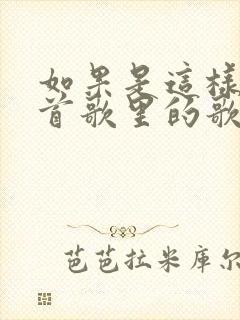 如果是這樣
首歌里的歌
芭芭拉米库尔